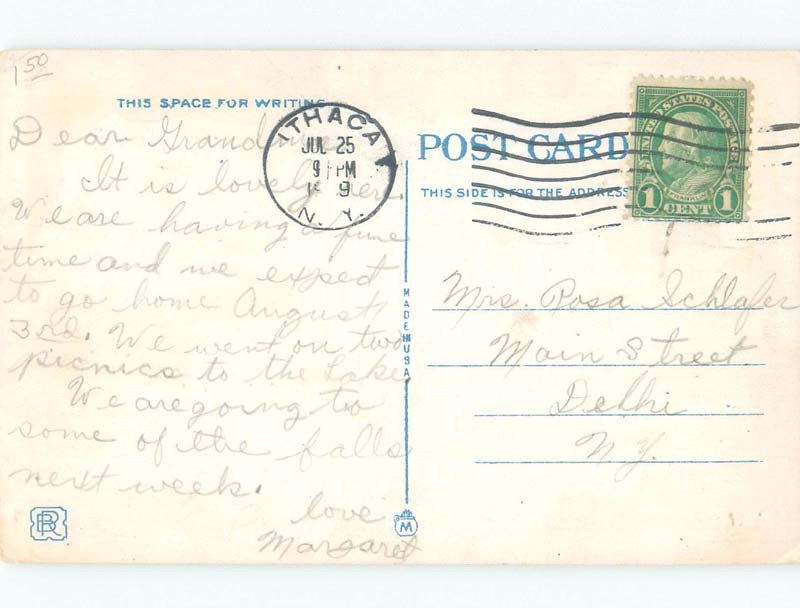 1 50
THIS SPACE FOR WRITING
Dear Grandma
It is lovely here.
We are having a fine
time and we expect
to go home August
3rd. We went on two
picnics to the Lake
We are going to
some of the falls
next week.
love
Margaret
ITHACA
JUL 25
9 PM
9
N. Y.
POST CARD
THIS SIDE IS FOR THE ADDRESS
UNITED STATES POSTAGE
FRANKLIN
1 CENT 1
MADE IN USA
Mrs. Rosa Schlafer
Main Street
Delhi
N.Y.
M